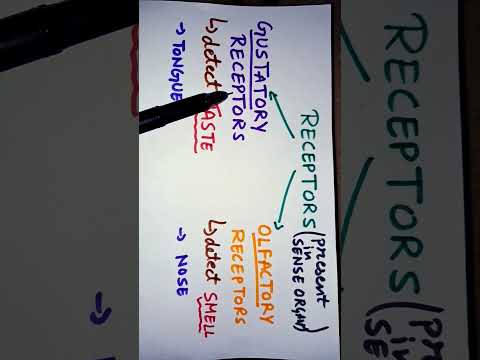 RECEPTORS (present
in
SENSE ORGAN)
GUSTATORY
RECEPTORS
↳ detect TASTE
→ TONGUE
OLFACTORY
RECEPTORS
↳ detect SMELL
→ NOSE
RECEPTORS (present
in